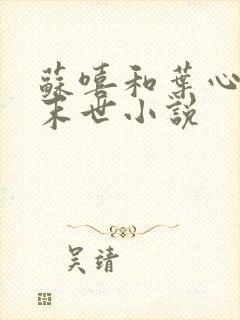 蘇嘻和葉心
末世小說
吴靖